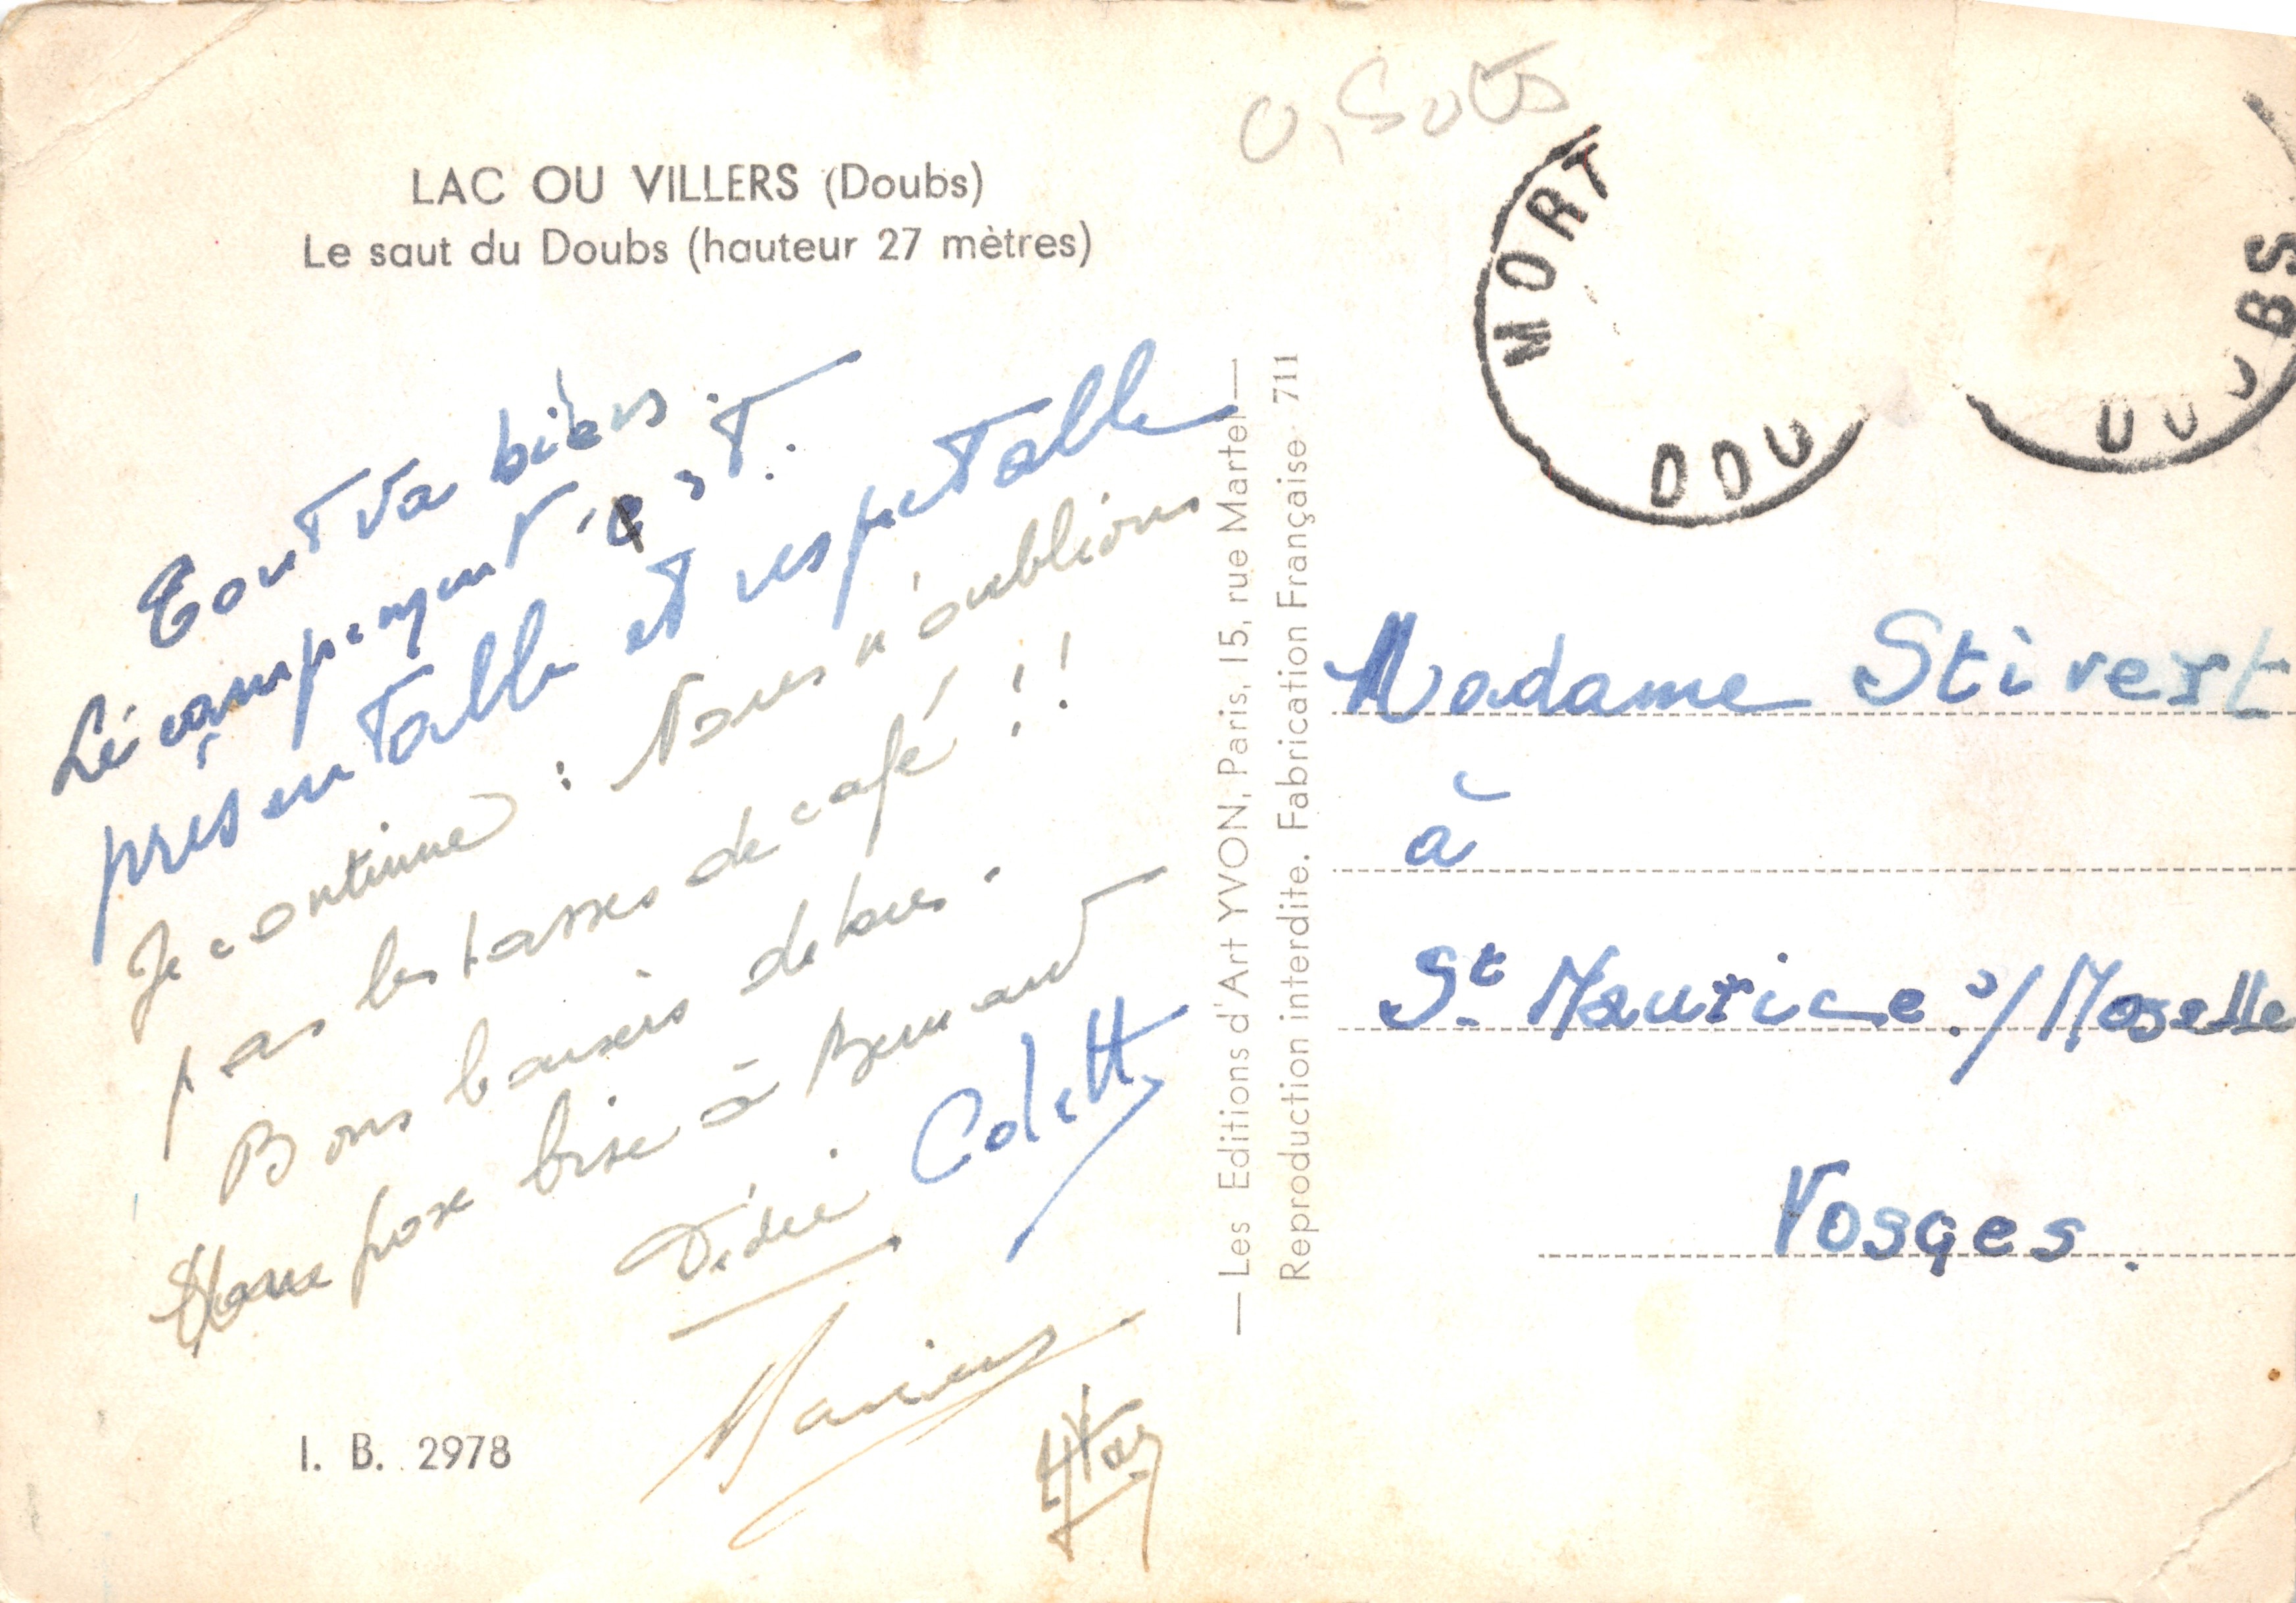 LAC OU VILLERS (Doubs)
Le saut du Doubs (hauteur 27 mètres)
Tout va bien.
Le campement est
présentable et respectable
Je continue : Nous n'oublions
pas les tasses de café !!
Bons baisers de tous.
Grosse bise à Bernard
Dédée. Colette
Marius
I. B. 2978
— Les Editions d'Art YVON, Paris, 15, rue Martel —
Reproduction interdite. Fabrication Française 711
MORT
DOU
DOUBS
Madame Stivert
à
St Maurice s/Moselle
Vosges.